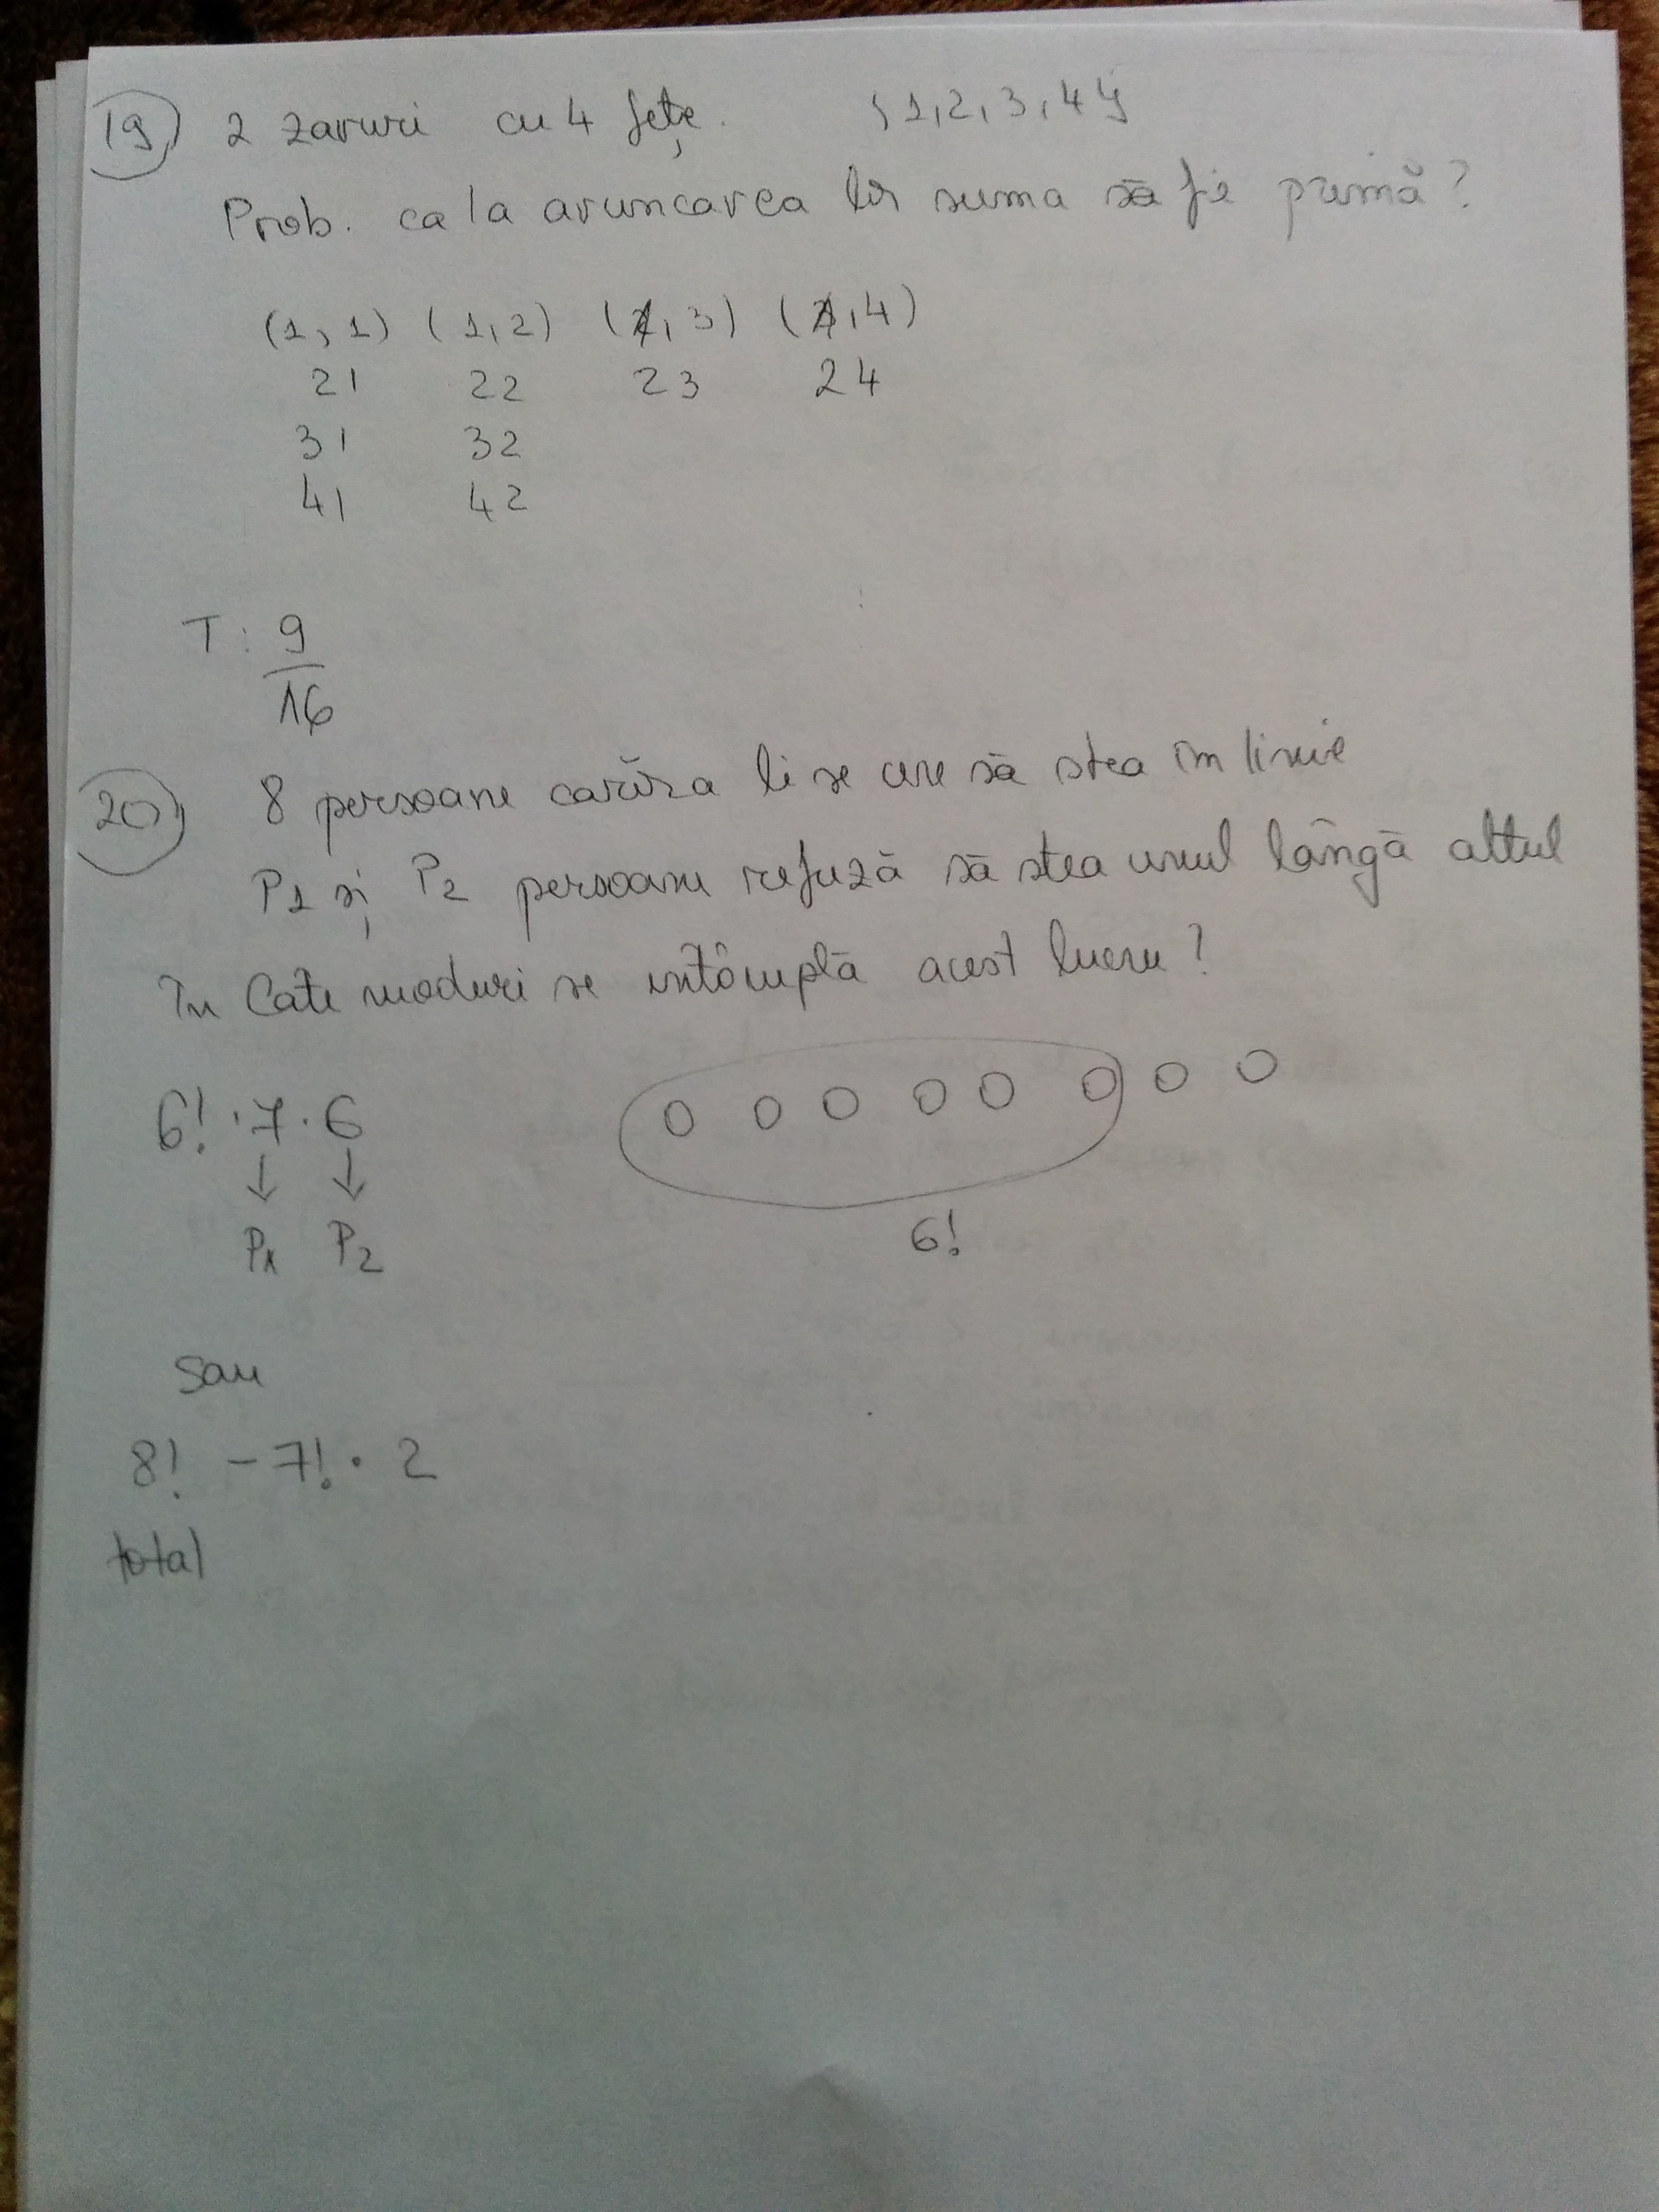 19) 2 zaruri cu 4 fețe. {1,2,3,4}
Prob. ca la aruncarea lor suma să fie primă?
(1,1) (1,2) (1,3) (1,4)
21 22 23 24
31 32
41 42
T: 9/16
20) 8 persoane cărora li se cere să stea în linie
P1 și P2 persoane refuză să stea unul lângă altul
În Câte moduri se întâmplă acest lucru?
6! · 7 · 6 O O O O O O O O
↓ ↓
P1 P2 6!
sau
8! - 7! · 2
total